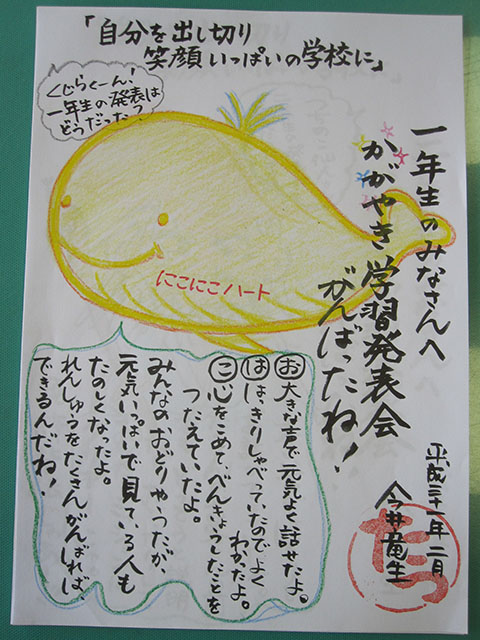 「自分を出し切り
笑顔いっぱいの学校に」
くじらくーん！
一年生の発表は
どうだった？
一年生のみなさんへ
かがやき学習発表会
がんばったね！
にこにこハート
お大きな声で元気よく話せたよ。
ははっきりしゃべっていたのでよく
わかったよ。
こ心をこめて、べんきょうしたことを
つたえていたよ。
みんなのおどりやうたが、
元気いっぱいで見ている人も
たのしくなったよ。
れんしゅうをたくさんがんばれば、
できるんだね！
平成三十一年二月
今井竜生
たつ